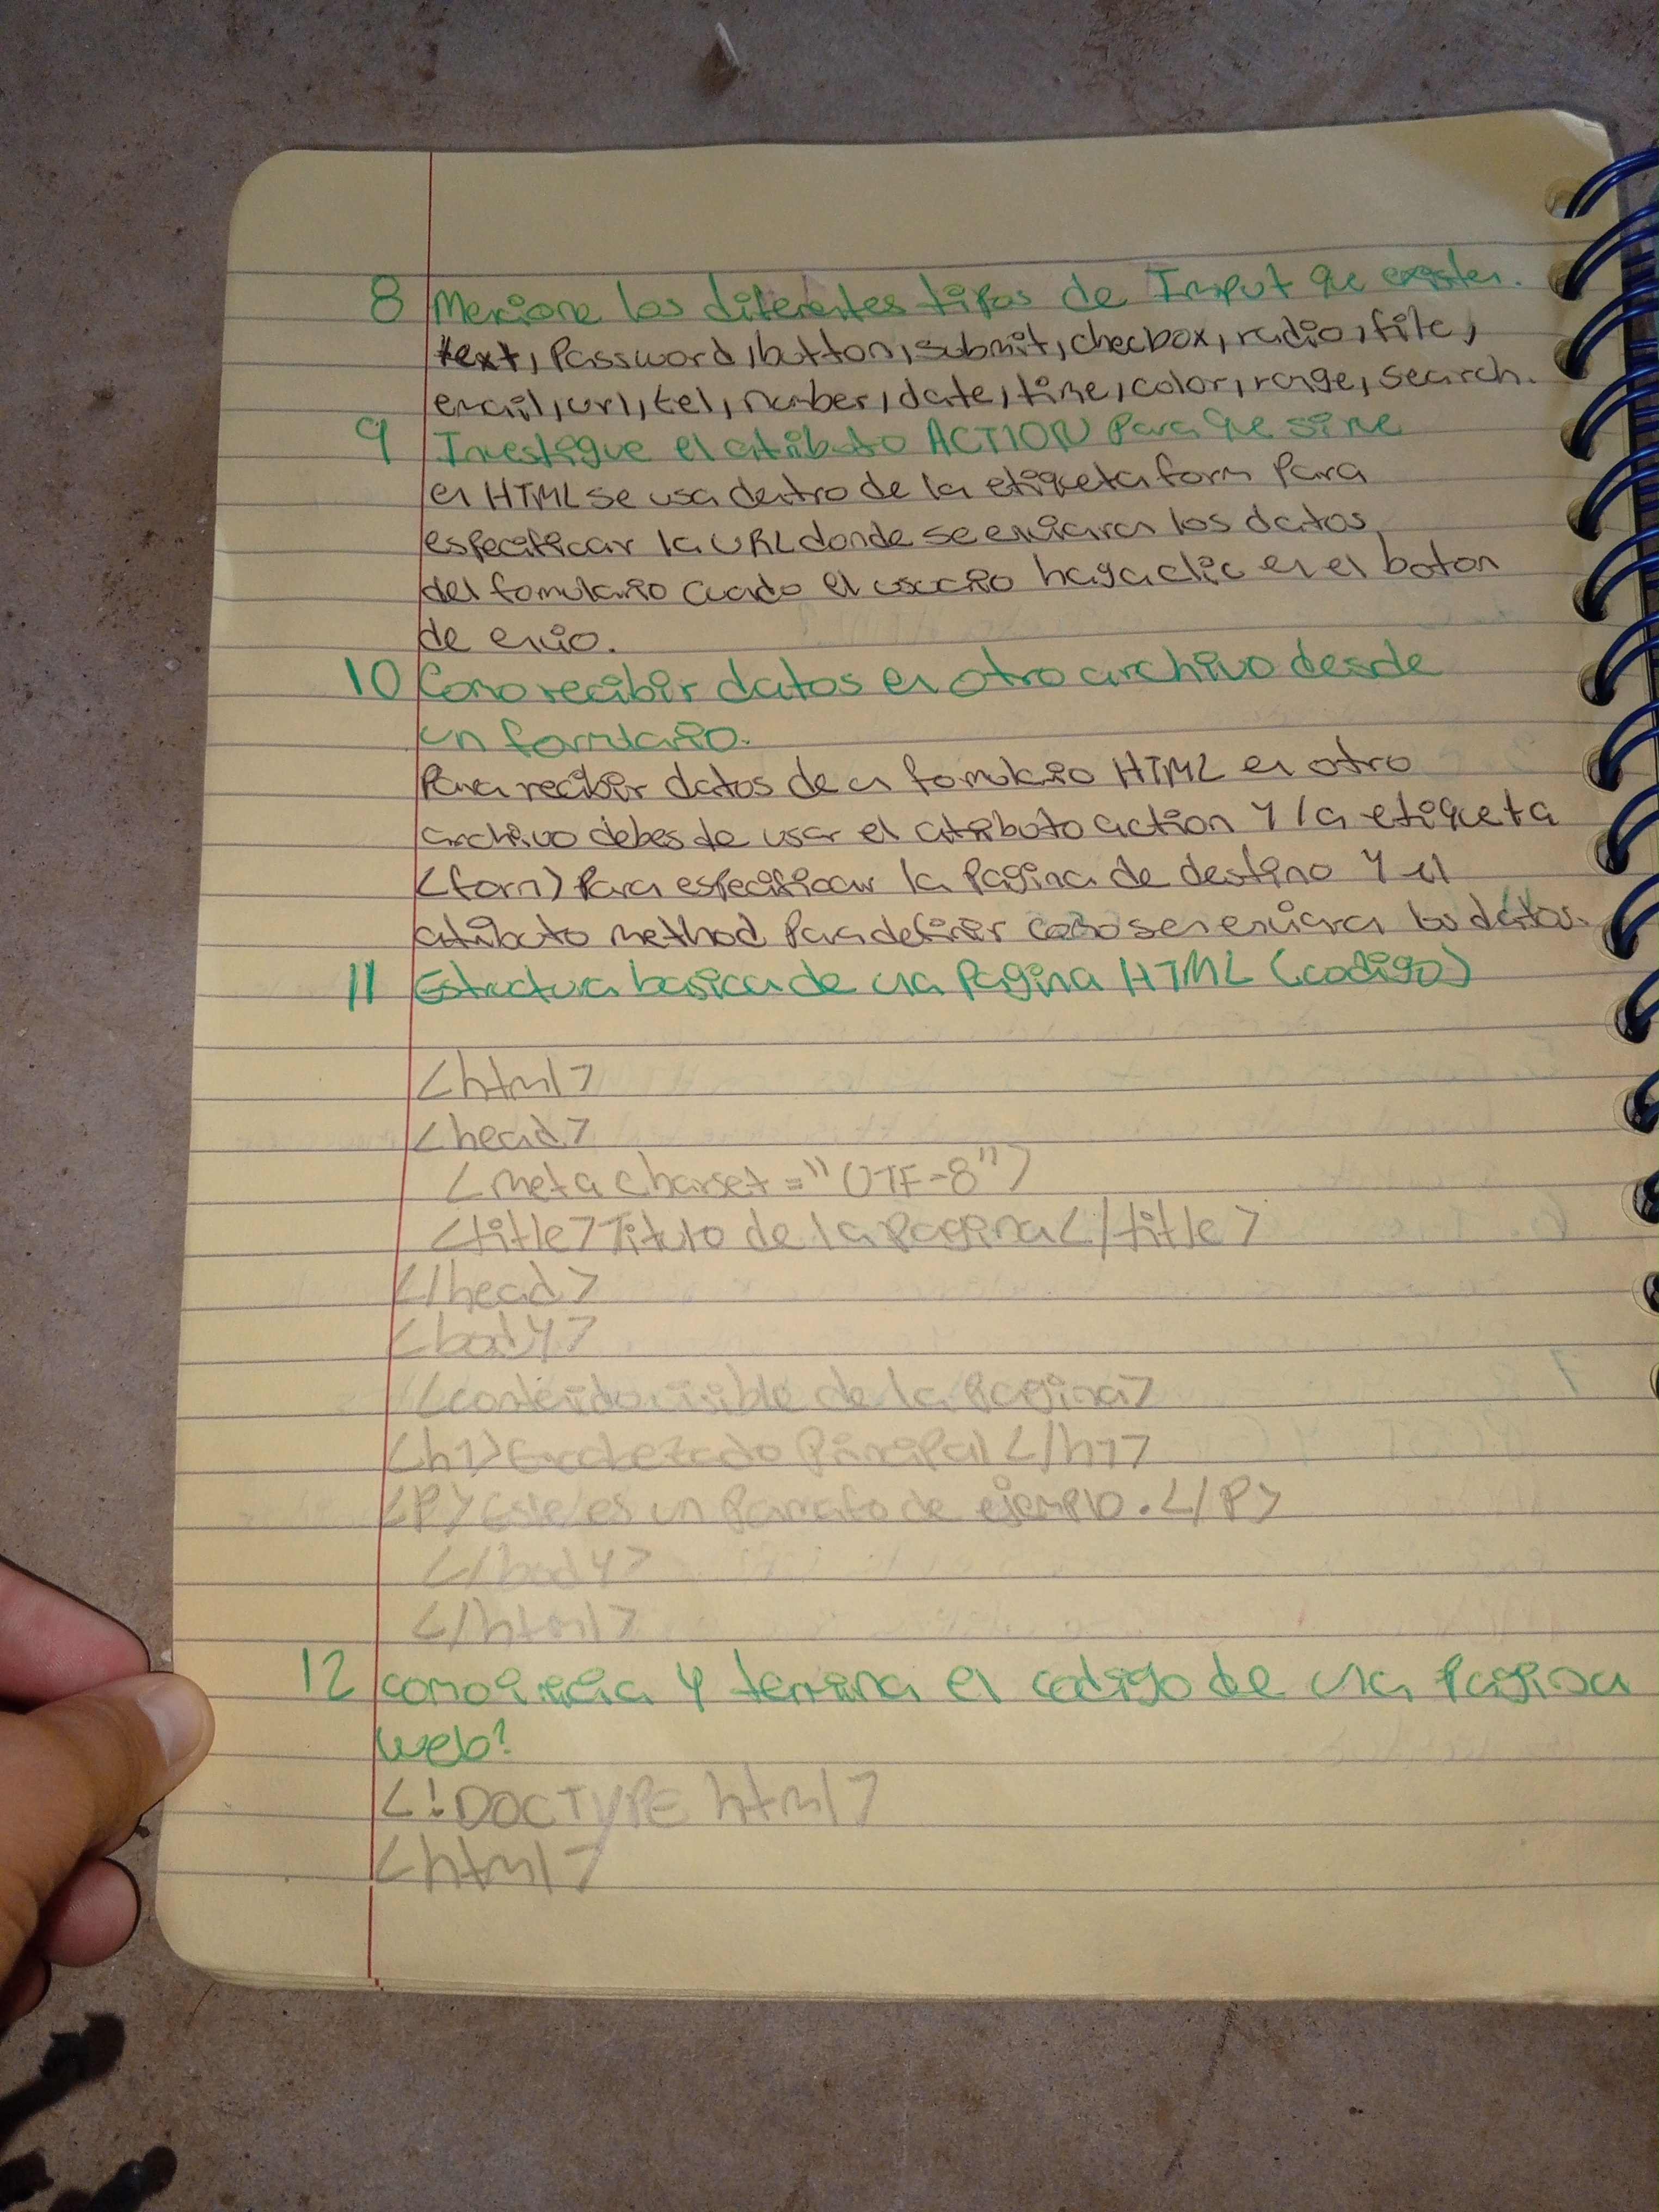 8 Mencione los diferentes tipos de Input que existen.
text, Password, button, submit, checbox, radio, file,
email, url, tel, number, date, time, color, range, search.
9 Investigue el atributo ACTION Para que sirve
en HTML se usa dentro de la etiqueta form Para
especificar la URL donde se enviaran los datos
del fomulario cuando el usuario haga clic en el boton
de envio.
10 Como recibir datos en otro archivo desde
un formulario.
Para recibir datos de un fomulario HTML en otro
archivo debes de usar el atributo action y la etiqueta
<form> Para especificar la Pagina de destino y el
atributo method Para definir como se enviara los datos.
11 Estructura basica de una Pagina HTML (codigo)
<html>
<head>
<meta charset="UTF-8">
<title>Titulo de la Pagina</title>
</head>
<body>
<contenido visible de la Pagina>
<h1>Encabezado Principal</h1>
<P>Este es un Parrafo de ejemplo.</P>
</body>
</html>
12 como inicia y termina el codigo de una Pagina
web?
<!DOCTYPE html>
<html>